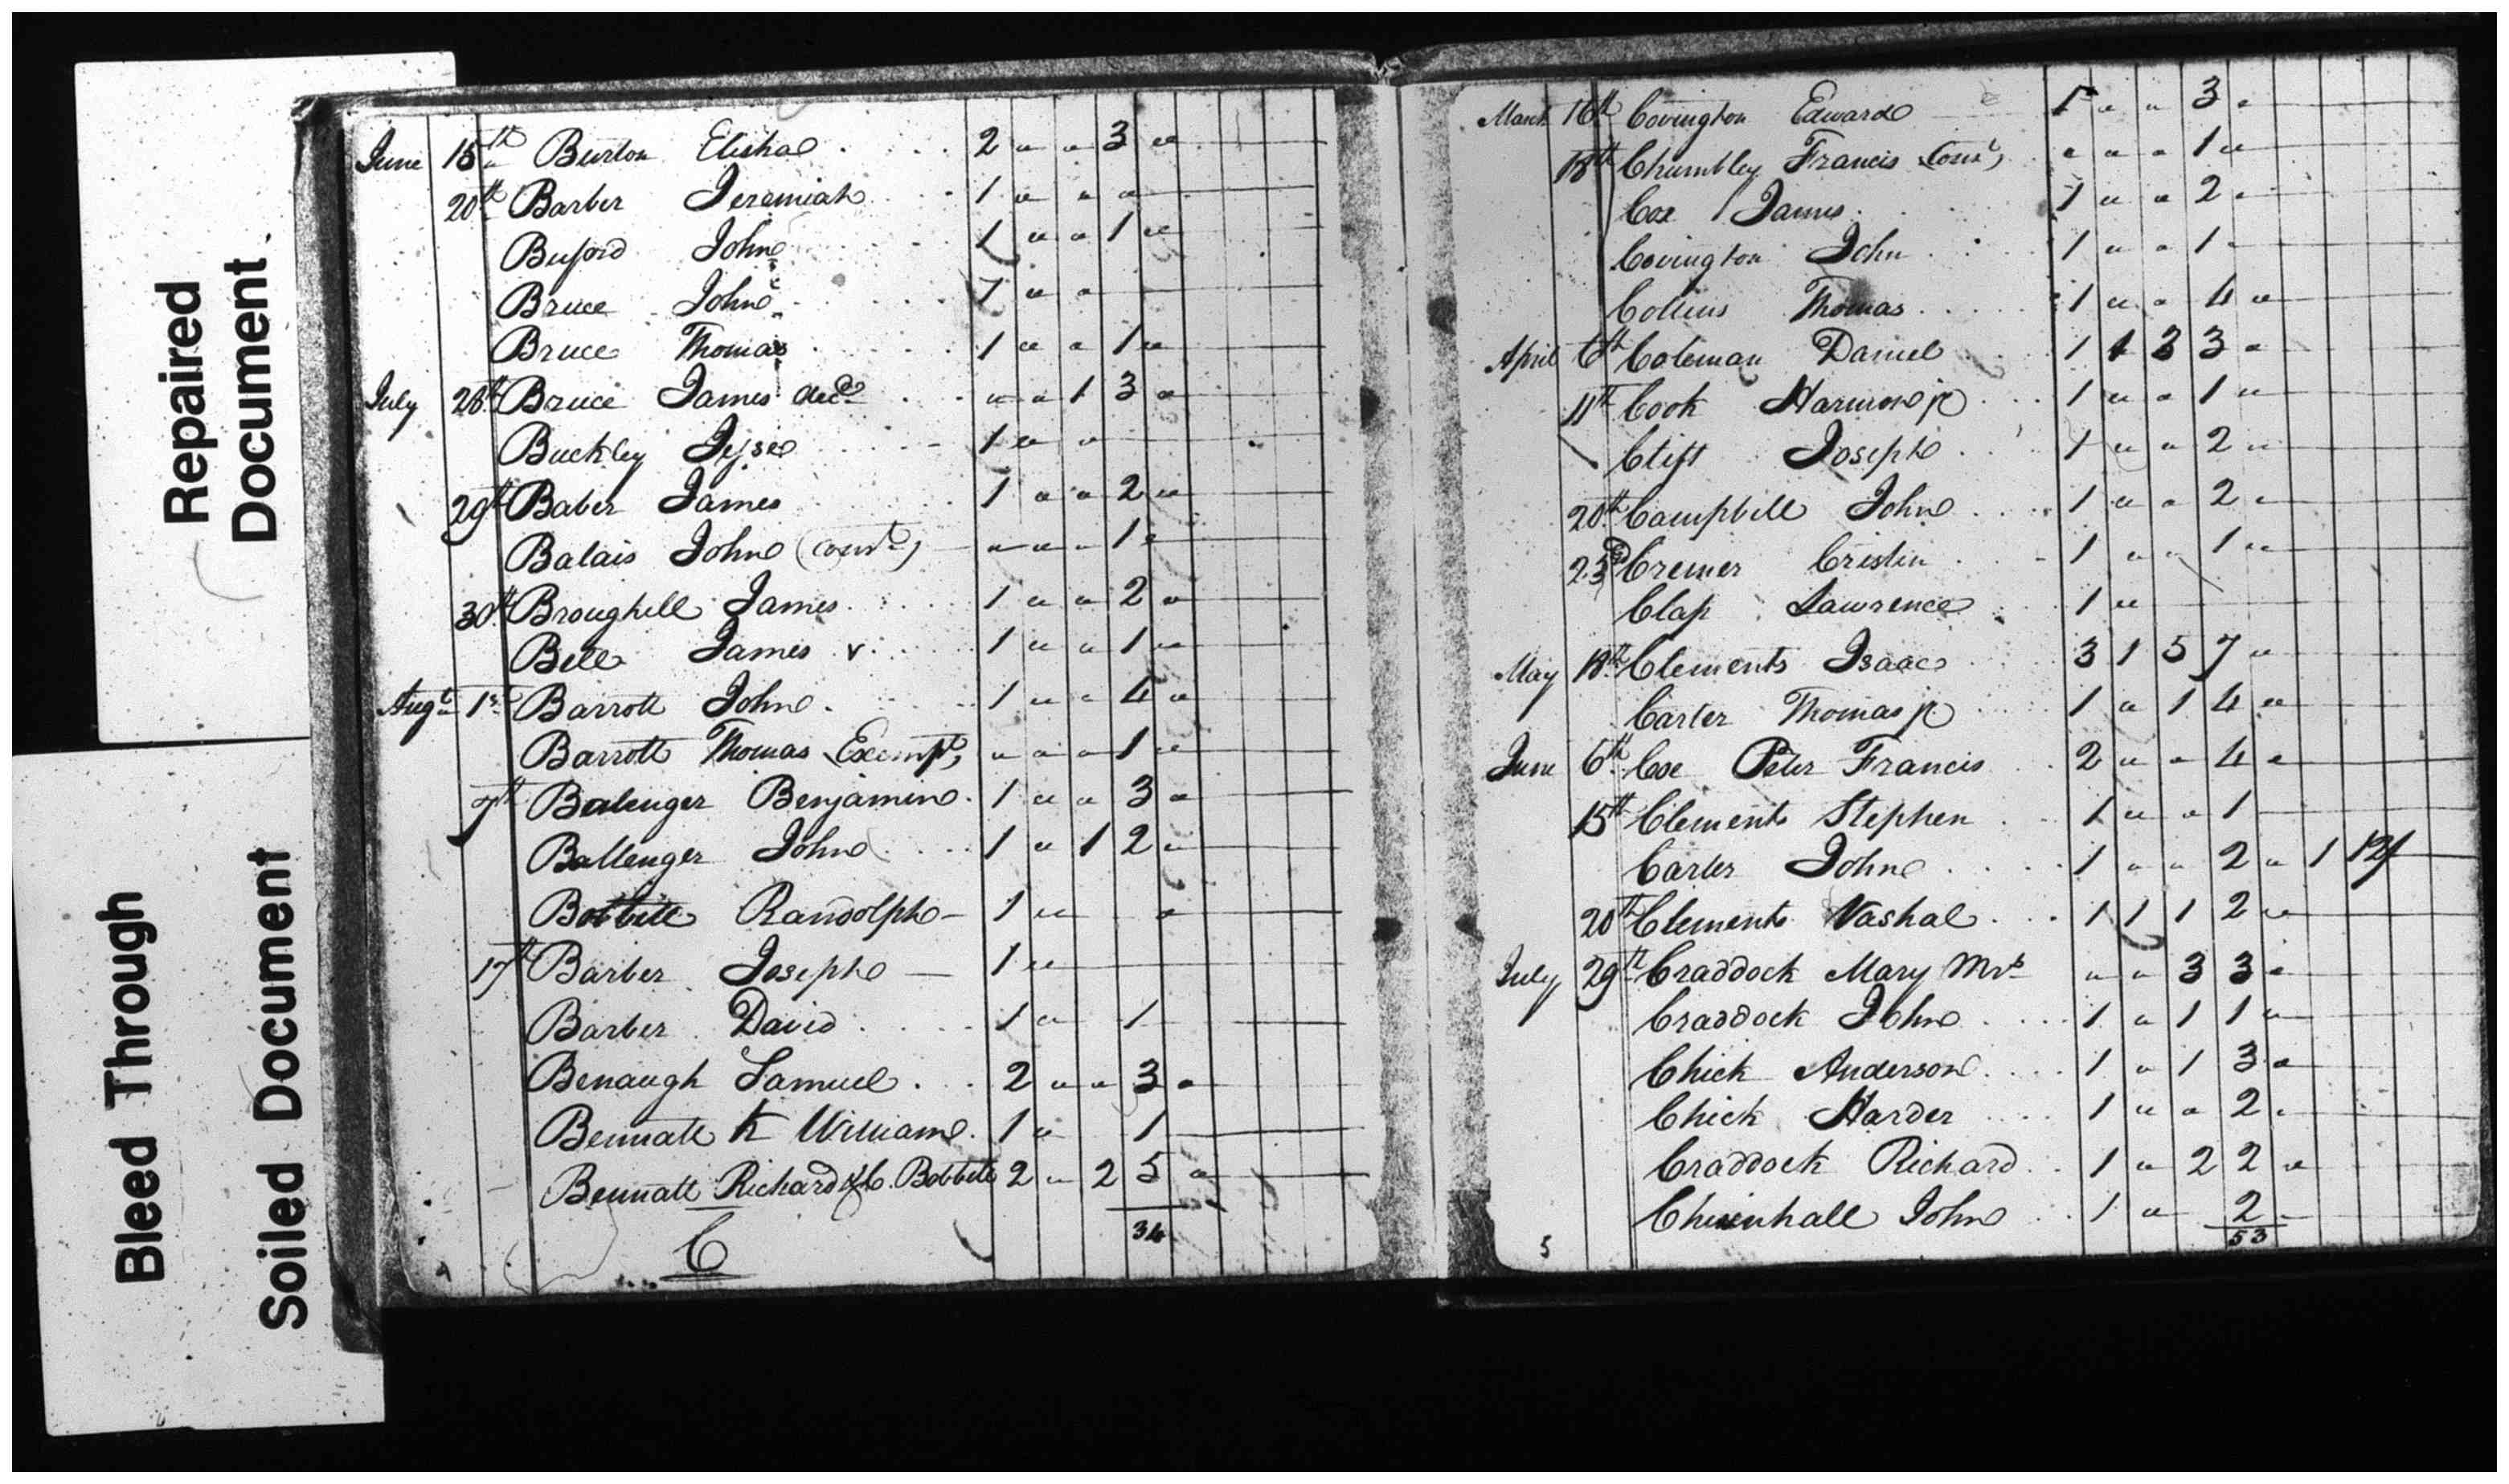 Repaired
Document
Bleed Through
Soiled Document
June 15th Burton Elisha 2 " " 3 "
20th Barber Jeremiah 1 " " "
Buford John 1 " " 1 "
Bruce John 1 " "
Bruce Thomas 1 " " 1 "
July 28th Bruce James decd " " 1 3 "
Buckley Jesse 1 " "
29th Baber James 1 " " 2 "
Balais John (const) " " " 1 "
30th Broughill James 1 " " 2 "
Bell James v 1 " " 1 "
Augt 1st Barrott John 1 " " 4 "
Barrott Thomas Exempt " " " 1 "
7th Balenger Benjamin 1 " " 3 "
Ballenger John 1 " 1 2 "
Bobbitt Randolph 1 " "
17th Barber Joseph 1 "
Barber David 1 " 1
Benaugh Samuel 2 " " 3 "
Bennatt K William 1 " 1
Bennatt Richard & C. Bobbitt 2 " 2 5 "
36
C
March 16th Covington Edward 1 " " 3 "
18th Chumbley Francis Const " " " 1 "
Cox James 1 " " 2 "
Covington John 1 " " 1 "
Collins Thomas 1 " " 4 "
April 6th Coleman Daniel 1 1 3 3 "
11th Cook Harmon jr 1 " " 1 "
Clift Joseph 1 " " 2 "
20th Campbell John 1 " " 2 "
23d Cremer Cristin 1 " " 1 "
Clap Lawrence 1 "
May 18th Clements Isaac 3 1 5 7 "
Carter Thomas jr 1 " 1 4 "
June 6th Cox Peter Francis 2 " " 4 "
15th Clements Stephen 1 " " 1
Carter John 1 " " 2 " 1 12/
20th Clements Vashal 1 1 1 2 "
July 29th Craddock Mary Mrs " " 3 3 "
Craddock John 1 " 1 1 "
Chick Anderson 1 " 1 3 "
Chick Harder 1 " " 2 "
Craddock Richard 1 " 2 2 "
John 1 " 2 "
5 53